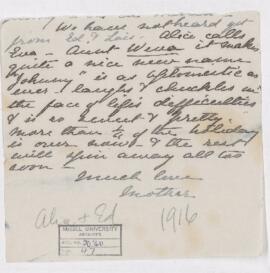 We have not heard yet
from Ed & Lois. Alice calls
Eva - Aunt Weva it makes
quite a nice new name
"Johnny" is as optimistic as
ever - laughs & chuckles in
the face of life's difficulties
& is so cute & pretty.
more than ½ of the holiday
is over now & the rest
will spin away all too
soon -
Much love
Mother
Alice + Ed
1916
McGILL UNIVERSITY
ARCHIVES